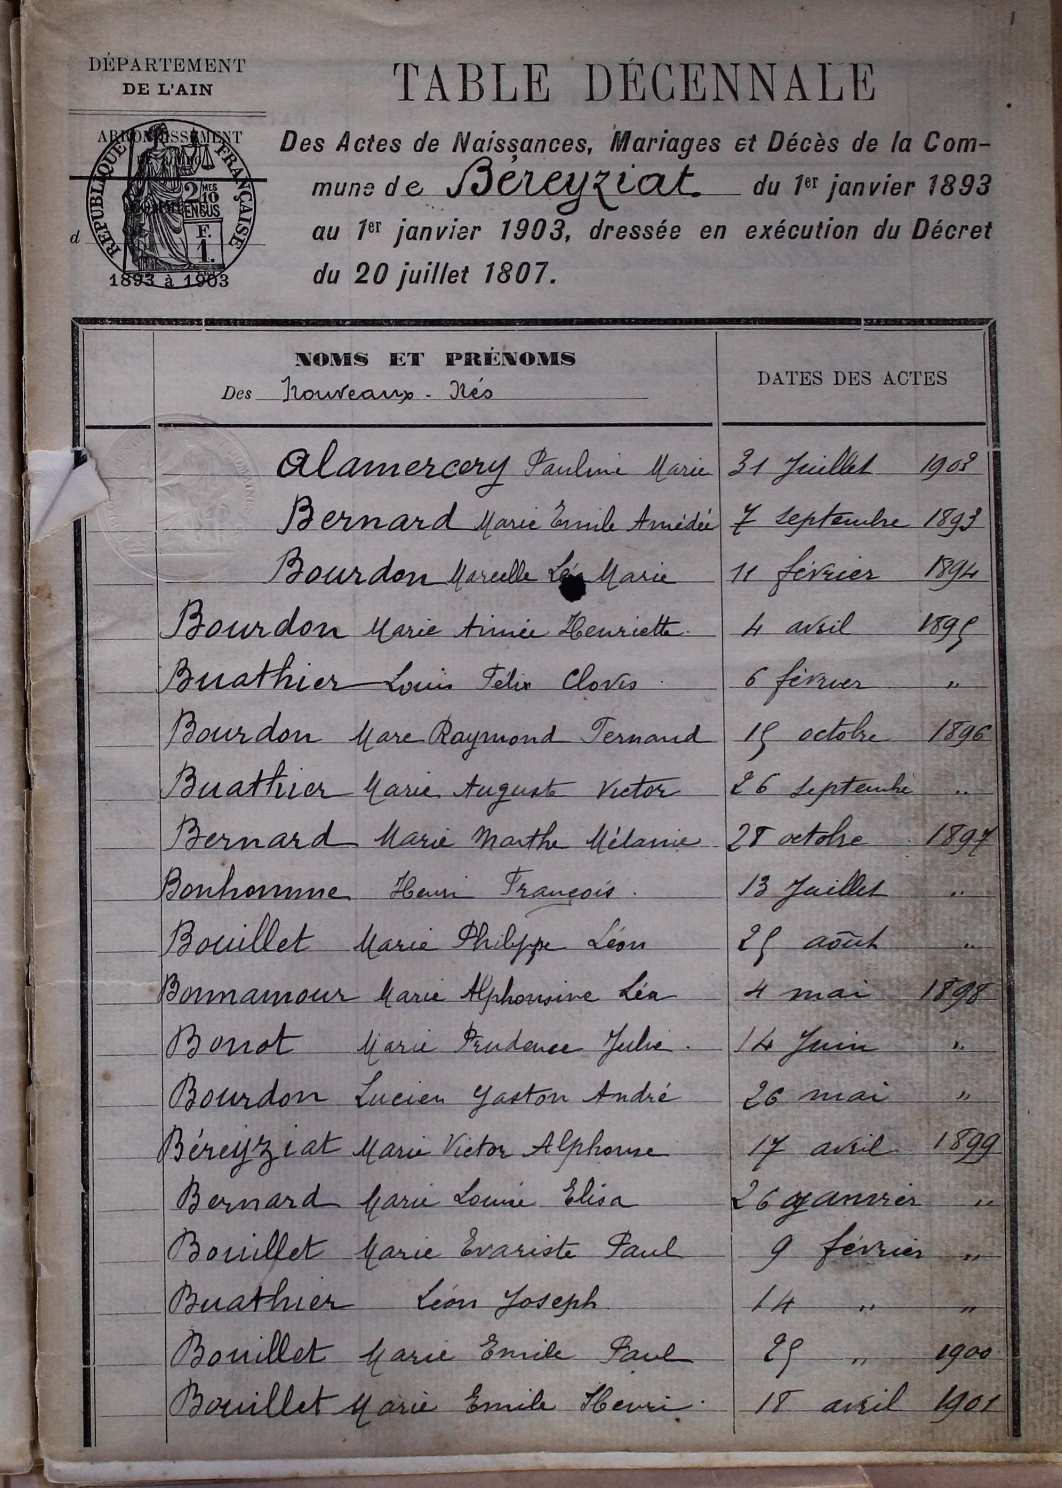 1
DÉPARTEMENT
DE L'AIN
ARRONDISSEMENT
RÉPUBLIQUE FRANÇAISE
2 MES
10
EN SUS
F.
1.
d
1893 à 1903
TABLE DÉCENNALE
Des Actes de Naissances, Mariages et Décès de la Com-
mune de Béreyziat du 1er janvier 1893
au 1er janvier 1903, dressée en exécution du Décret
du 20 juillet 1807.
NOMS ET PRÉNOMS
Des Nouveaux-Nés
DATES DES ACTES
Alamercery Pauline Marie 31 Juillet 1903
Bernard Marie Emile Amédée 7 septembre 1893
Bourdon Marcelle Marie 11 février 1894
Bourdon Marie Aimée Henriette 4 avril 1895
Buathier Louis Félix Clovis 6 février "
Bourdon Marc Raymond Fernand 15 octobre 1896
Buathier Marie Auguste Victor 26 septembre "
Bernard Marie Marthe Mélanie 28 octobre 1897
Bonhomme Henri François 13 Juillet "
Bouillet Marie Philippe Léon 25 août "
Bonnamour Marie Alphonsine Léa 4 mai 1898
Bonot Marie Prudence Julie 14 Juin "
Bourdon Lucien Gaston André 26 mai "
Béreyziat Marie Victor Alphonse 17 avril 1899
Bernard Marie Louise Elisa 26 janvier "
Bouillet Marie Evariste Paul 9 février "
Buathier Léon Joseph 14 " "
Bouillet Marie Emile Paul 25 " 1900
Bouillet Marie Emile Henri 18 avril 1901